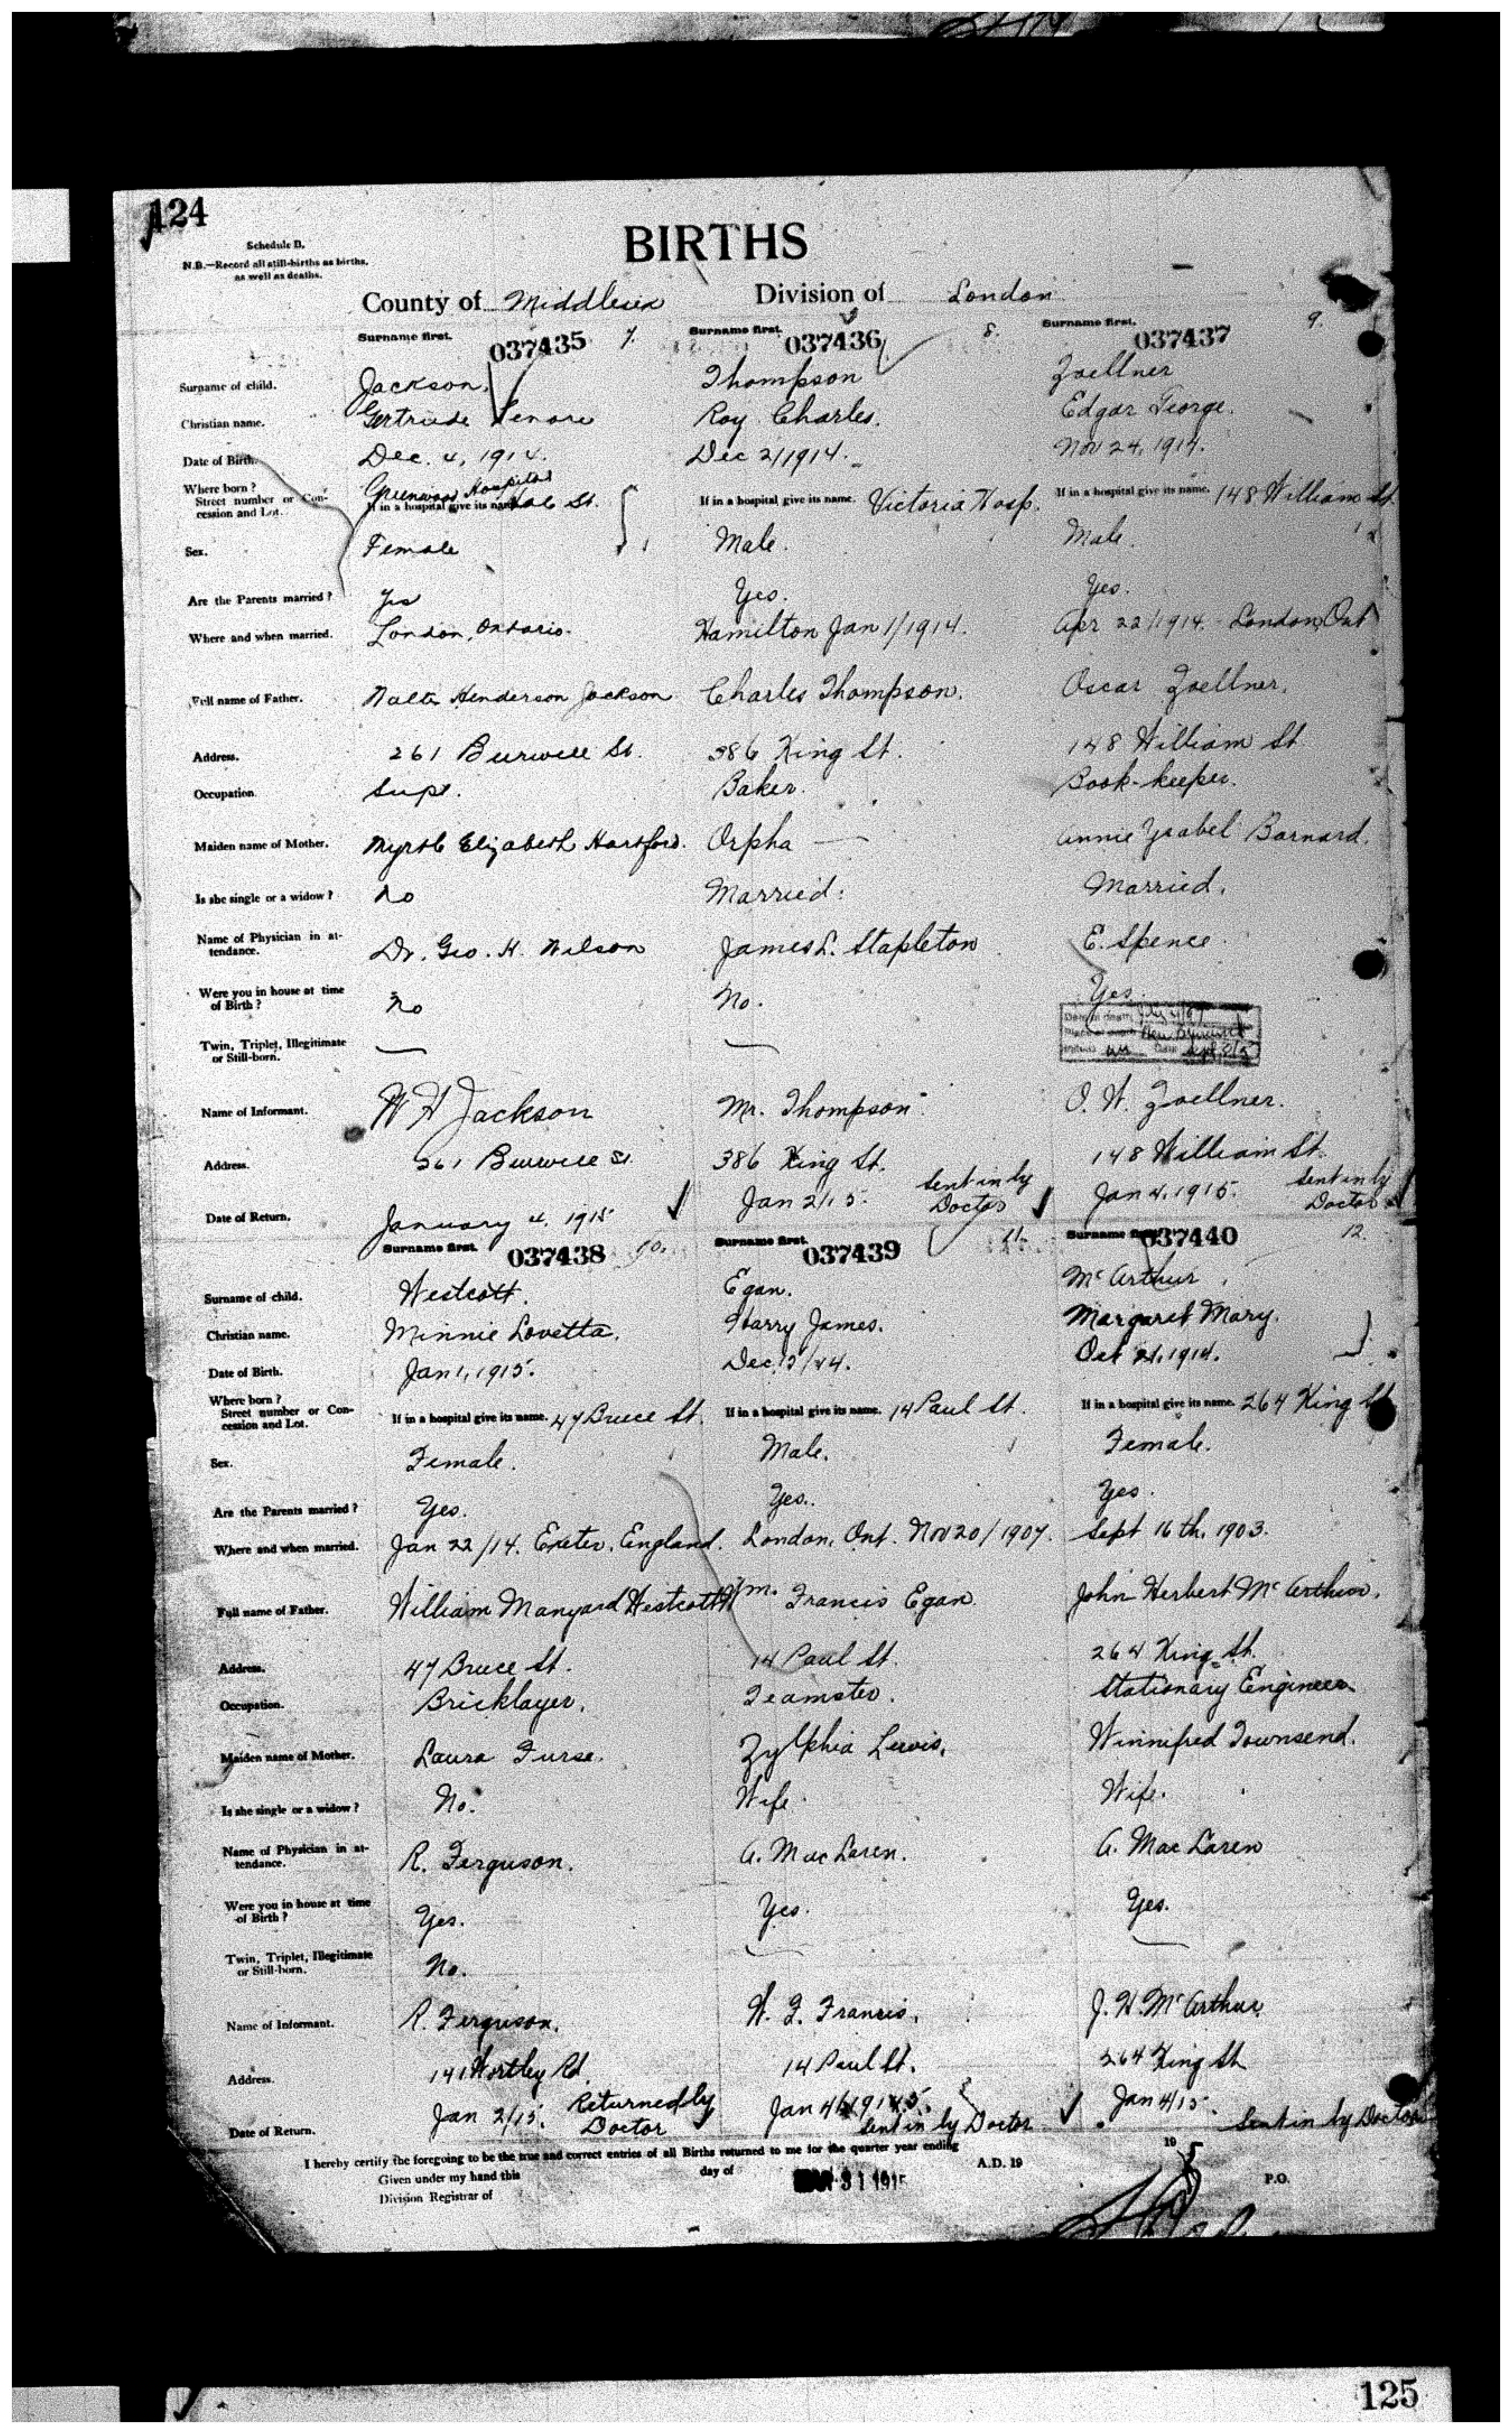 124
Schedule B.
N.B.—Record all still-births as births,
as well as deaths.
BIRTHS
County of Middlesex Division of London
Surname first. 037435 7. Surname first. 037436 8. Surname first. 037437 9.
Surname of child. Jackson. Thompson Zoellner
Christian name. Gertrude Lenore Roy Charles. Edgar George.
Date of Birth. Dec. 4, 1914. Dec 2/1914. Nov 24, 1914.
Where born? Greenwood Hospital
Street number or Concession and Lot. If in a hospital give its name. St. If in a hospital give its name. Victoria Hosp. If in a hospital give its name. 148 William St.
Sex. Female Male. Male.
Are the Parents married? Yes Yes. Yes.
Where and when married. London, Ontario. Hamilton Jan 1/1914. Apr 22/1914. London, Ont
Full name of Father. Walter Henderson Jackson Charles Thompson. Oscar Zoellner.
Address. 261 Burwell St. 386 King St. 148 William St
Occupation. Supt. Baker. Book-keeper.
Maiden name of Mother. Myrtle Elizabeth Hartford. Orpha — Annie Ysabel Barnard.
Is she single or a widow? No Married. Married.
Name of Physician in attendance. Dr. Geo. H. Wilson James L. Stapleton E. Spence.
Were you in house at time of Birth? No No. Yes.
Twin, Triplet, Illegitimate or Still-born. — —
Name of Informant. W H Jackson Mr. Thompson. O. W. Zoellner.
Address. 261 Burwell St. 386 King St. 148 William St.
Date of Return. January 4, 1915 Jan 2/15. Sent in by Doctor Jan 4, 1915. Sent in by Doctor
Surname first. 037438 10. Surname first. 037439 11. Surname first. 037440 12.
Surname of child. Westcott. Egan. McArthur
Christian name. Minnie Lovetta. Harry James. Margaret Mary.
Date of Birth. Jan 1, 1915. Dec. Oct 1914.
Where born?
Street number or Concession and Lot. If in a hospital give its name. 47 Bruce St. If in a hospital give its name. 14 Paul St. If in a hospital give its name. 264 King St
Sex. Female. Male. Female.
Are the Parents married? Yes. Yes. Yes.
Where and when married. Jan 22/14. Exeter, England. London, Ont. Nov 20/1907. Sept 16th, 1903.
Full name of Father. William Manyard Westcott Wm. Francis Egan John Herbert McArthur.
Address. 47 Bruce St. 14 Paul St. 264 King St.
Occupation. Bricklayer. Teamster. Stationary Engineer
Maiden name of Mother. Laura Furse. Zylphia Lewis. Winnifred Townsend.
Is she single or a widow? No. Wife. Wife.
Name of Physician in attendance. R. Ferguson. A. MacLaren. A. MacLaren
Were you in house at time of Birth? Yes. Yes. Yes.
Twin, Triplet, Illegitimate or Still-born. No. — —
Name of Informant. R. Ferguson. W. F. Francis. J. H. McArthur
Address. 141 Wortley Rd. 14 Paul St. 264 King St
Date of Return. Jan 2/15. Returned by Doctor Jan 4 Sent in by Doctor Jan 4/15. Sent in by Doctor
I hereby certify the foregoing to be the true and correct entries of all Births returned to me for the quarter year ending A.D. 19
Given under my hand this day of 31 1915 19 5
Division Registrar of P.O.
125